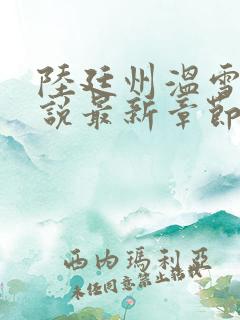 陸廷州溫雪
說最新章節
西內瑪利亞
未經同意禁止轉載